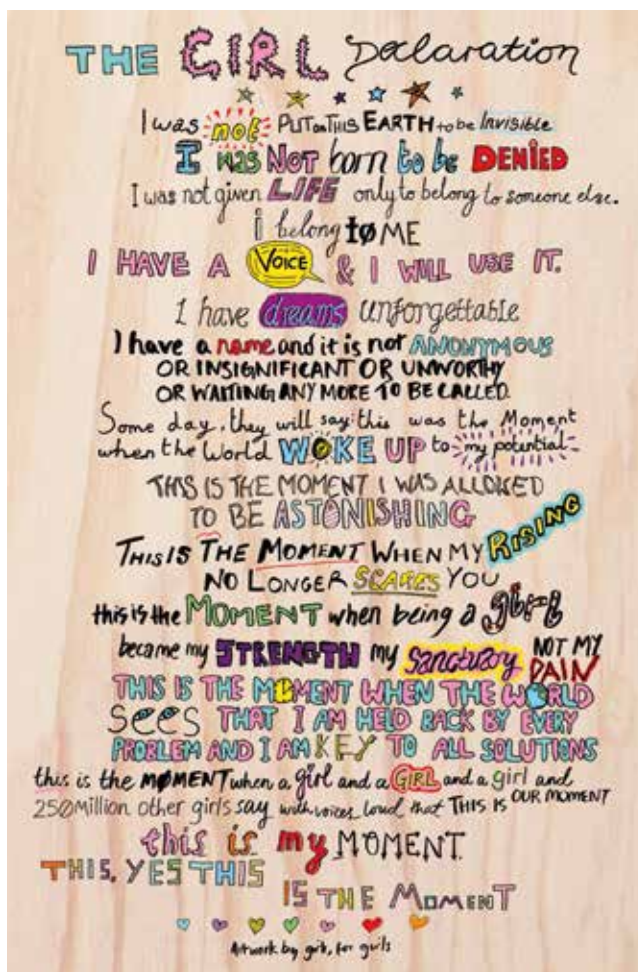 THE GIRL Declaration
I was not PUT on THIS EARTH to be Invisible
I WAS NOT born to be DENIED
I was not given LIFE only to belong to someone else.
i belong tO ME
I HAVE A VOICE & I WILL USE IT.
I have dreams unforgettable
I have a name and it is not ANONYMOUS
OR INSIGNIFICANT OR UNWORTHY
OR WAITING ANY MORE TO BE CALLED.
Some day, they will say: this was the Moment
when the World WOKE UP to my potential
THIS IS THE MOMENT I WAS ALLOWED
TO BE ASTONISHING
THIS IS THE MOMENT WHEN MY RISING
NO LONGER SCARES YOU
this is the MOMENT when being a girl
became my STRENGTH my sanctuary NOT MY PAIN
THIS IS THE MOMENT WHEN THE WORLD
SEES THAT I AM HELD BACK BY EVERY
PROBLEM AND I AM KEY TO ALL SOLUTIONS
this is the MOMENT when a girl and a GIRL and a girl and
250Million other girls say with voices loud that THIS IS OUR MOMENT
this is my MOMENT.
THIS, YES THIS
IS THE MOMENT
Artwork by girls, for girls